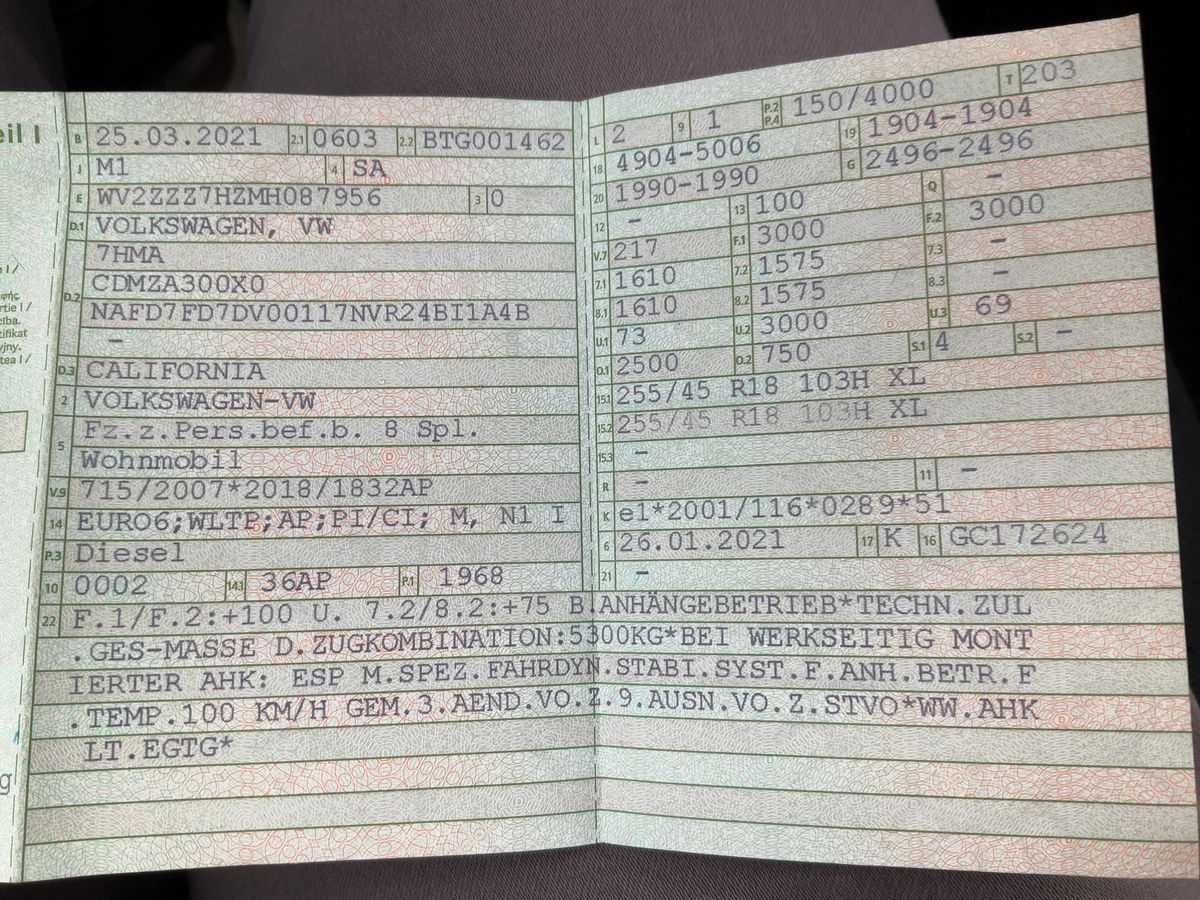 eil I
B 25.03.2021 2.1 0603 2.2 BTG001462
J M1 4 SA
E WV2ZZZ7HZMH087956 3 0
D.1 VOLKSWAGEN, VW
7HMA
D.2 CDMZA300X0
NAFD7FD7DV00117NVR24BI1A4B
–
D.3 CALIFORNIA
2 VOLKSWAGEN-VW
5 Fz.z.Pers.bef.b. 8 Spl.
Wohnmobil
V.9 715/2007*2018/1832AP
14 EURO6;WLTP;AP;PI/CI; M, N1 I
P.3 Diesel
10 0002 14.1 36AP P.1 1968
L 2 9 1 P.2 P.4 150/4000 T 203
18 4904-5006 19 1904-1904
20 1990-1990 G 2496-2496
12 – 13 100 Q –
V.7 217 F.1 3000 F.2 3000
7.1 1610 7.2 1575 7.3 –
8.1 1610 8.2 1575 8.3 –
U.1 73 U.2 3000 U.3 69
O.1 2500 O.2 750 S.1 4 S.2 –
15.1 255/45 R18 103H XL
15.2 255/45 R18 103H XL
15.3 –
R – 11 –
K e1*2001/116*0289*51
6 26.01.2021 17 K 16 GC172624
21 –
22 F.1/F.2:+100 U. 7.2/8.2:+75 B.ANHÄNGEBETRIEB*TECHN.ZUL
.GES-MASSE D.ZUGKOMBINATION:5300KG*BEI WERKSEITIG MONT
IERTER AHK: ESP M.SPEZ.FAHRDYN.STABI.SYST.F.ANH.BETR.F
.TEMP.100 KM/H GEM.3.AEND.VO.Z.9.AUSN.VO.Z.STVO*WW.AHK
LT.EGTG*